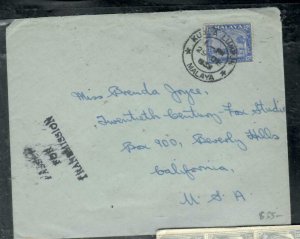 KUALA LUMPUR
MALAYA
MALAYA
Miss Brenda Joyce,
Twentieth Century Fox Studio
Box 900, Beverly Hills
California,
U.S.A
PASSED
FOR
TRANSMISSION
$55-